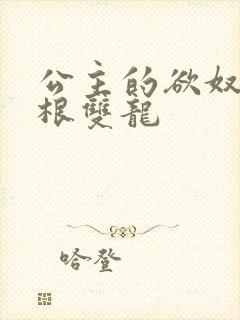 公主的欲奴
根雙龍
哈登